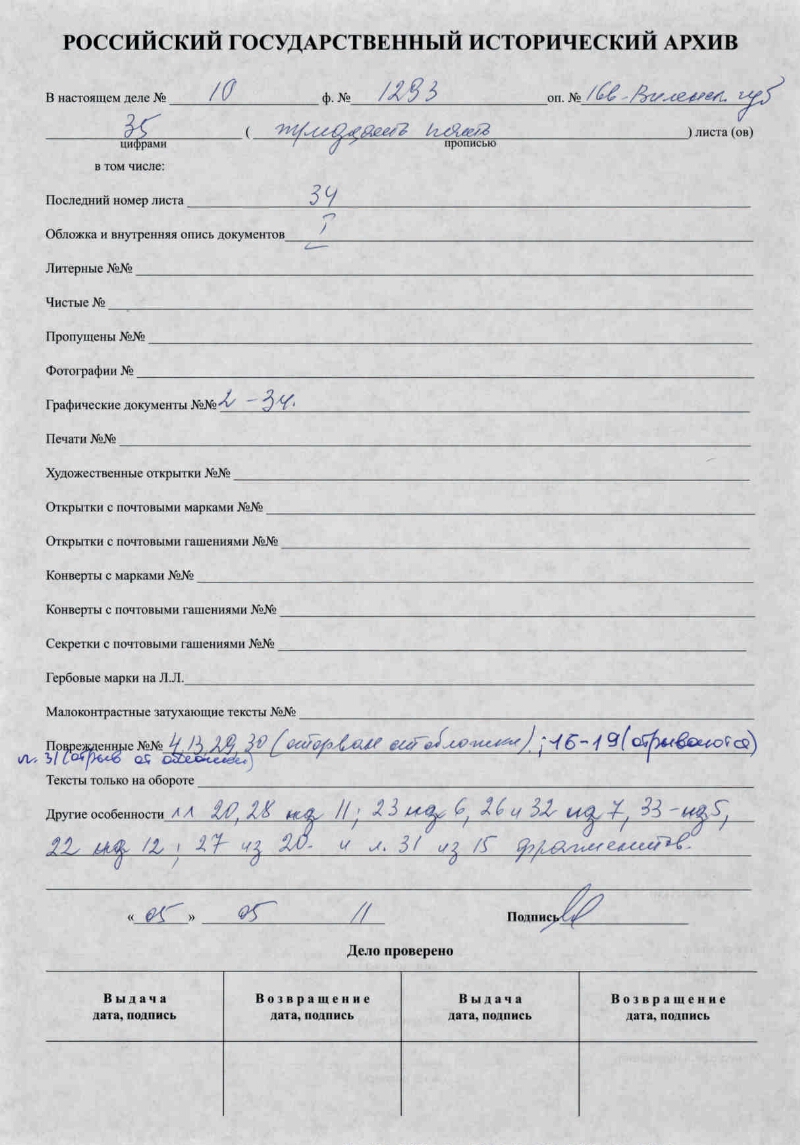 РОССИЙСКИЙ ГОСУДАРСТВЕННЫЙ ИСТОРИЧЕСКИЙ АРХИВ
В настоящем деле № 10 ф. № 1293 оп. № 16в-Виленск. губ
35 ( тридцать пять ) листа (ов)
цифрами прописью
в том числе:
Последний номер листа 34
Обложка и внутренняя опись документов I
Литерные №№
Чистые №
Пропущены №№
Фотографии №
Графические документы №№ 2 - 34.
Печати №№
Художественные открытки №№
Открытки с почтовыми марками №№
Открытки с почтовыми гашениями №№
Конверты с марками №№
Конверты с почтовыми гашениями №№
Секретки с почтовыми гашениями №№
Гербовые марки на Л.Л.
Малоконтрастные затухающие тексты №№
Поврежденные №№ 4, 13, 29, 30 (оторван от обложки); 16-19 (отрываются)
л. 31 (отрыв от обложки)
Тексты только на обороте
Другие особенности лл 20, 28 из 11; 23 из 6, 26 и 32 из 7, 33-из 5,
22 из 12; 27 из 20. и л. 31 из 15 фрагментов.
« 05 » 05 11 Подпись
Дело проверено
Выдача Возвращение Выдача Возвращение
дата, подпись дата, подпись дата, подпись дата, подпись